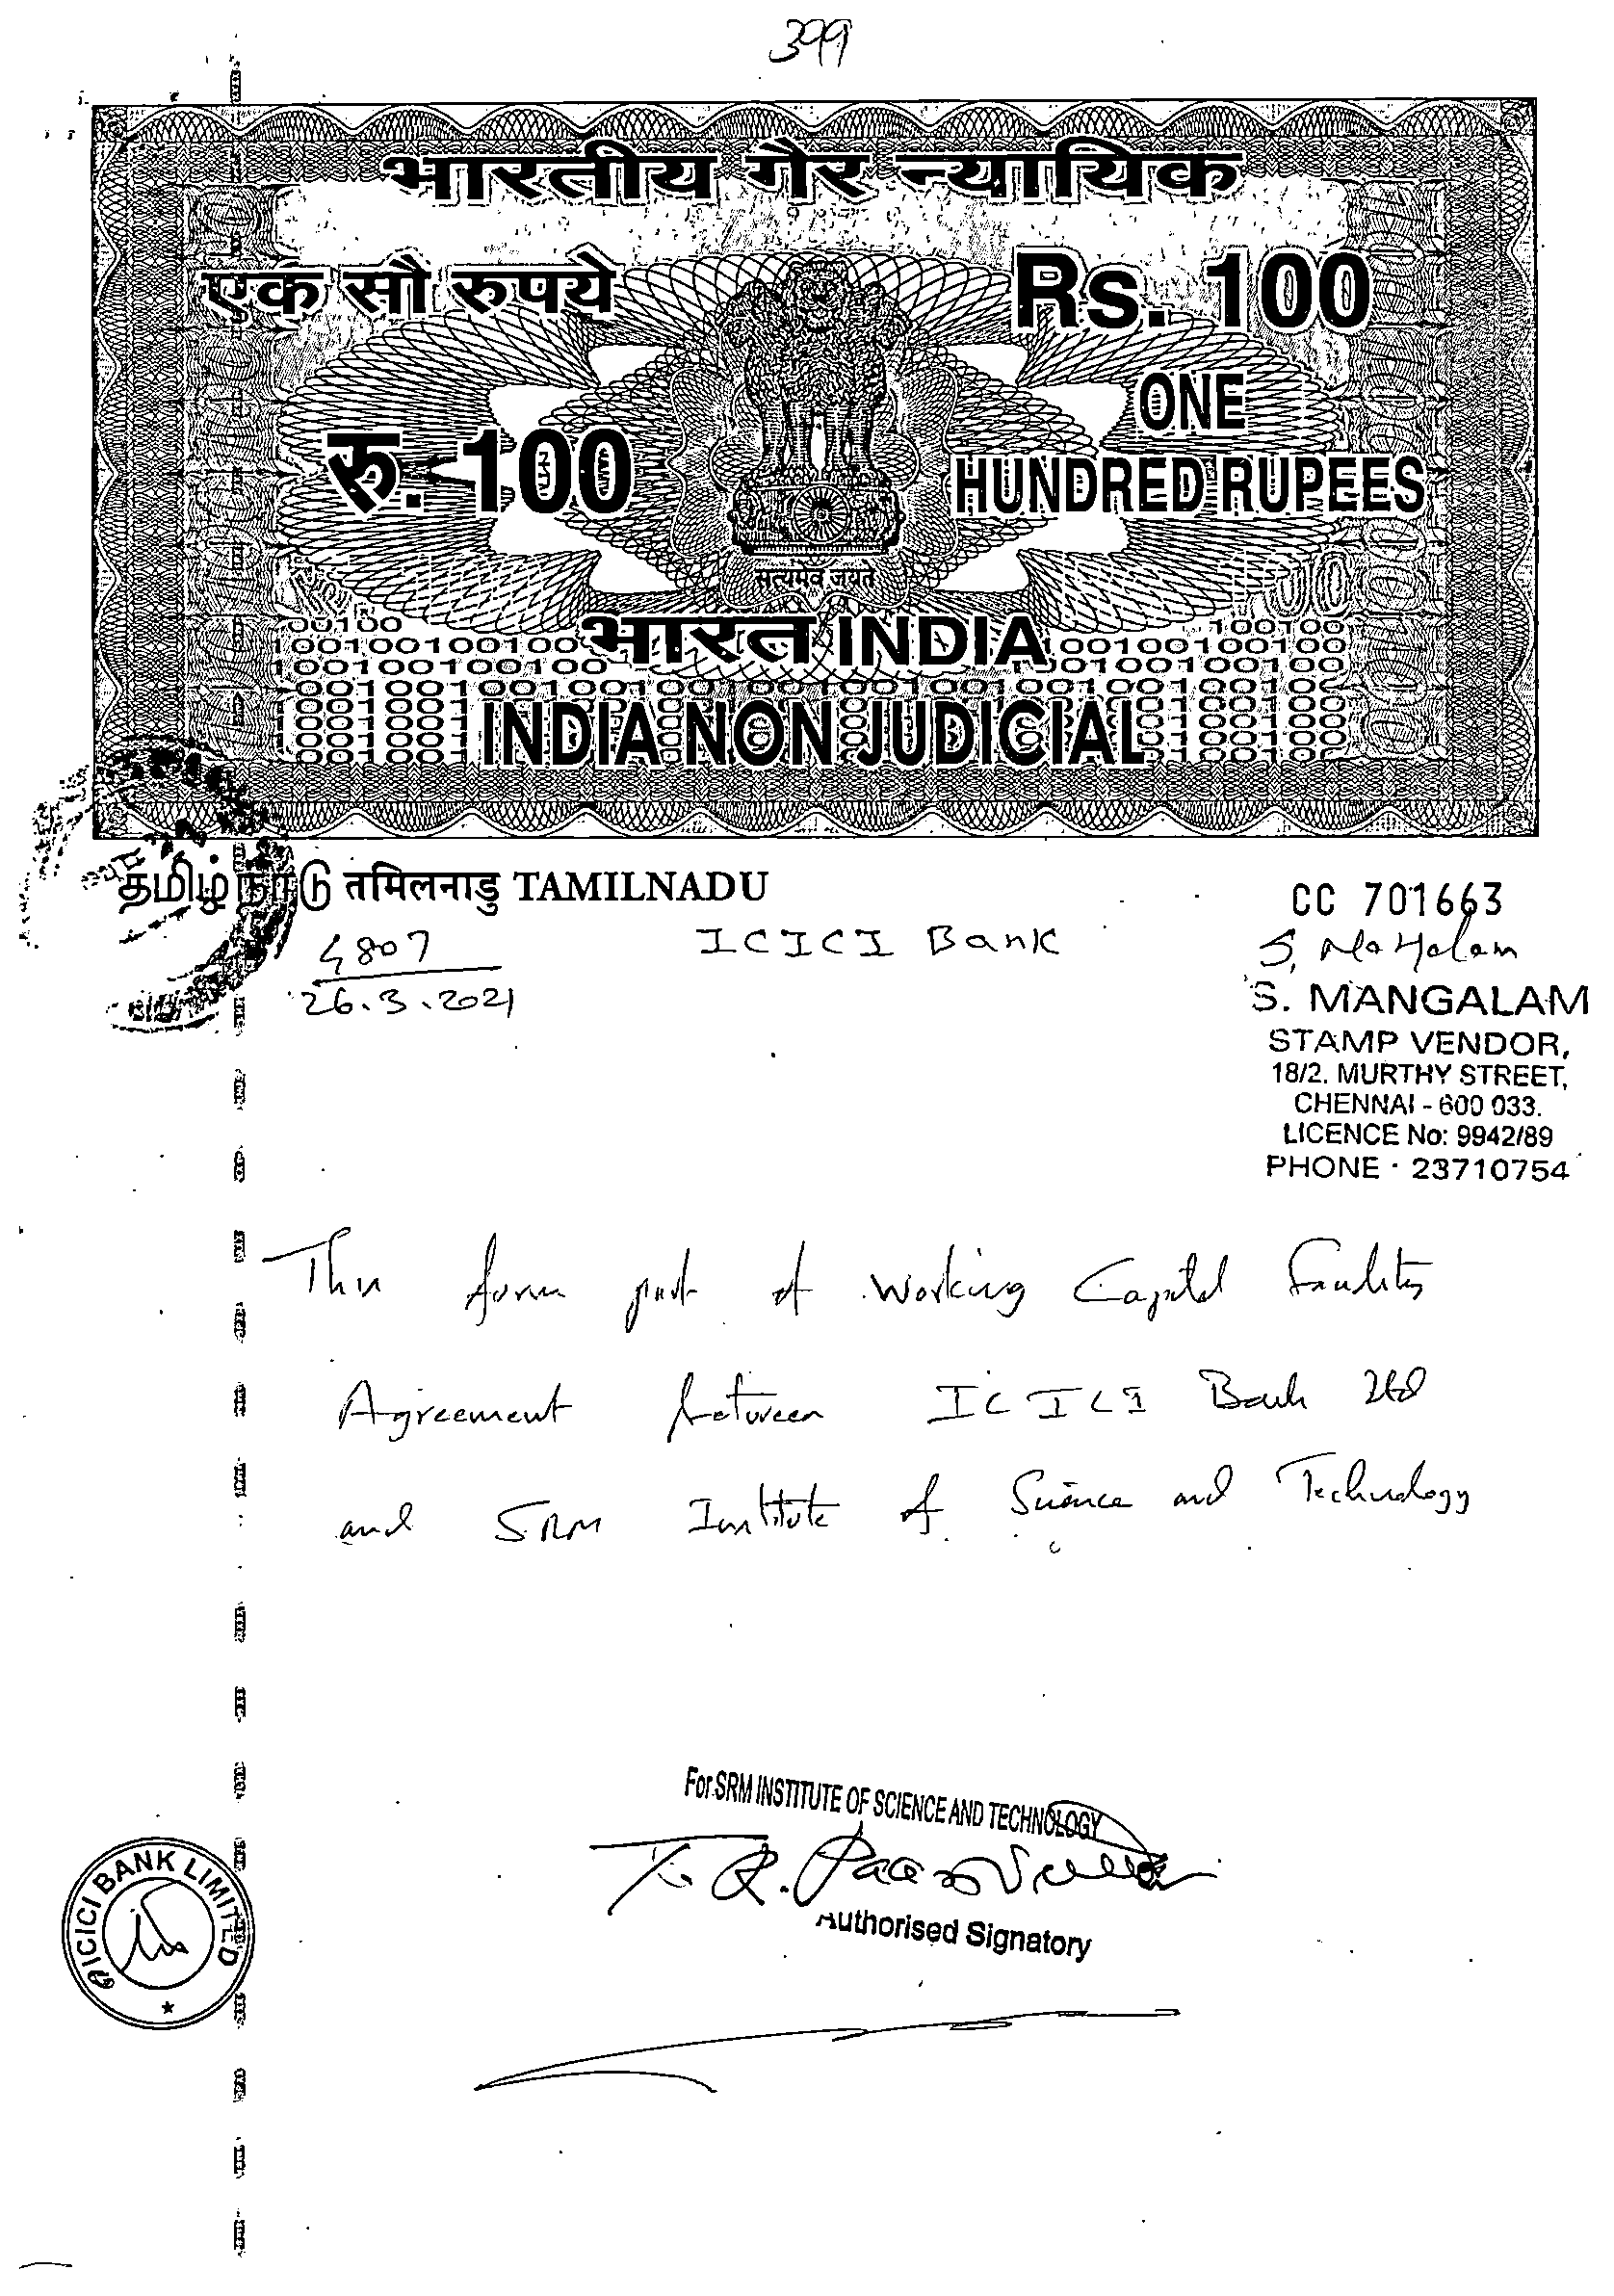 399
भारतीय गैर न्यायिक
एक सौ रुपये
Rs. 100
रु. 100
ONE
HUNDRED RUPEES
सत्यमेव जयते
भारत INDIA
INDIA NON JUDICIAL
தமிழ்நாடு तमिलनाडु TAMILNADU
CC 701663
4807
26.3.2021
ICICI Bank
S. Mangalam
S. MANGALAM
STAMP VENDOR,
18/2. MURTHY STREET,
CHENNAI - 600 033.
LICENCE No: 9942/89
PHONE · 23710754
This form part of Working Capital Facility
Agreement between ICICI Bank Ltd
and SRM Institute of Science and Technology
For SRM INSTITUTE OF SCIENCE AND TECHNOLOGY
Authorised Signatory
ICICI BANK LIMITED